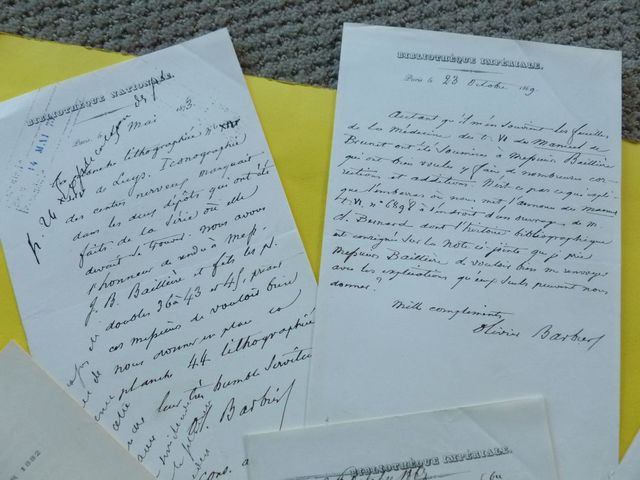 BIBLIOTHÈQUE NATIONALE.
14 MAI
Paris le Mai 1873
p. 26
La planche lithographiée
de Luys. Iconographie
des centres nerveux manquait
dans les deux dépôts qui ont été
faits de la Série où elle
devait se trouver. Nous avons
l'honneur de rendre à Mess.
J. B. Baillière et fils les pl.
doubles 36 à 43 et 45, priant
ces messieurs de vouloir bien
nous donner en place la
planche 44 lithographiée
leur très humble Serviteur
O. Barbier
BIBLIOTHÈQUE IMPÉRIALE.
Paris le 23 Octobre 1869.
Autant qu'il m'en souvient les feuilles
de la Médecine du t. VI du Manuel de
Brunet ont été soumises à Messieurs Baillière
qui ont bien voulu y faire de nombreuses cor-
rections et additions. N'est-ce pas ce qui expli-
que l'embarras où nous met l'annonce du Manuel
t. VI. N° 6898 à l'endroit d'un ouvrage de M.
Cl. Bernard dont l'histoire bibliographique
est consignée sur la Note ci jointe que je prie
Messieurs Baillière de vouloir bien me renvoyer
avec les explications qu'eux seuls peuvent nous
donner?
Mille compliments,
Olivier Barbier
BIBLIOTHÈQUE IMPÉRIALE.
1882